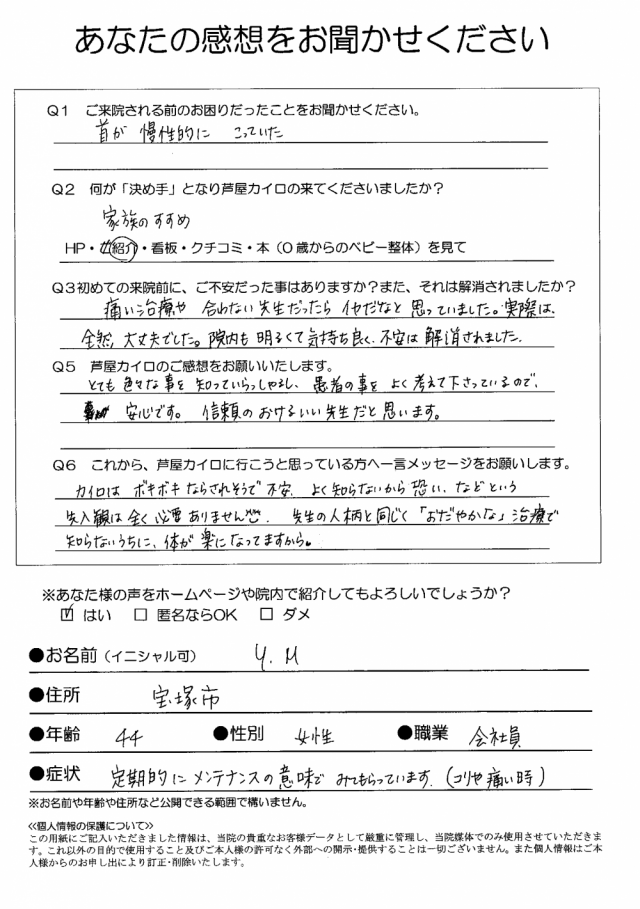 あなたの感想をお聞かせください
Q1 ご来院される前のお困りだったことをお聞かせください。
首が 慢性的に こっていた
Q2 何が「決め手」となり芦屋カイロの来てくださいましたか？
家族のすすめ
HP・紹介・看板・クチコミ・本（０歳からのベビー整体）を見て
Q3初めての来院前に、ご不安だった事はありますか？また、それは解消されましたか？
痛い治療や 合わない先生だったら イヤだなと 思っていました。実際は、
全然 大丈夫でした。院内も 明るくて 気持ち良く、不安は 解消されました。
Q5 芦屋カイロのご感想をお願いいたします。
とても 色々な事を 知っていらっしゃるし、患者の事を よく考えて下さっているので、
安心です。 信頼の おけるいい先生だと 思います。
Q6 これから、芦屋カイロに行こうと思っている方へ一言メッセージをお願いします。
カイロは ボキボキ ならされそうで 不安、 よく知らないから 恐い、などという
先入観は 全く必要ありません。 先生の人柄と同じく「おだやかな」治療で
知らないうちに、体が 楽になってますから。
※あなた様の声をホームページや院内で紹介してもよろしいでしょうか？
☑ はい □ 匿名ならOK □ ダメ
●お名前（イニシャル可） Y. M
●住所 宝塚市
●年齢 44 ●性別 女性 ●職業 会社員
●症状 定期的に メンテナンスの意味で みてもらっています。（コリや痛い時）
※お名前や年齢や住所など公開できる範囲で構いません。
≪個人情報の保護について≫
この用紙にご記入いただきました情報は、当院の貴重なお客様データとして厳重に管理し、当院媒体でのみ使用させていただきま
す。これ以外の目的で使用すること及びご本人様の許可なく外部への開示・提供することは一切ございません。また個人情報はご本
人様からのお申し出により訂正・削除いたします。